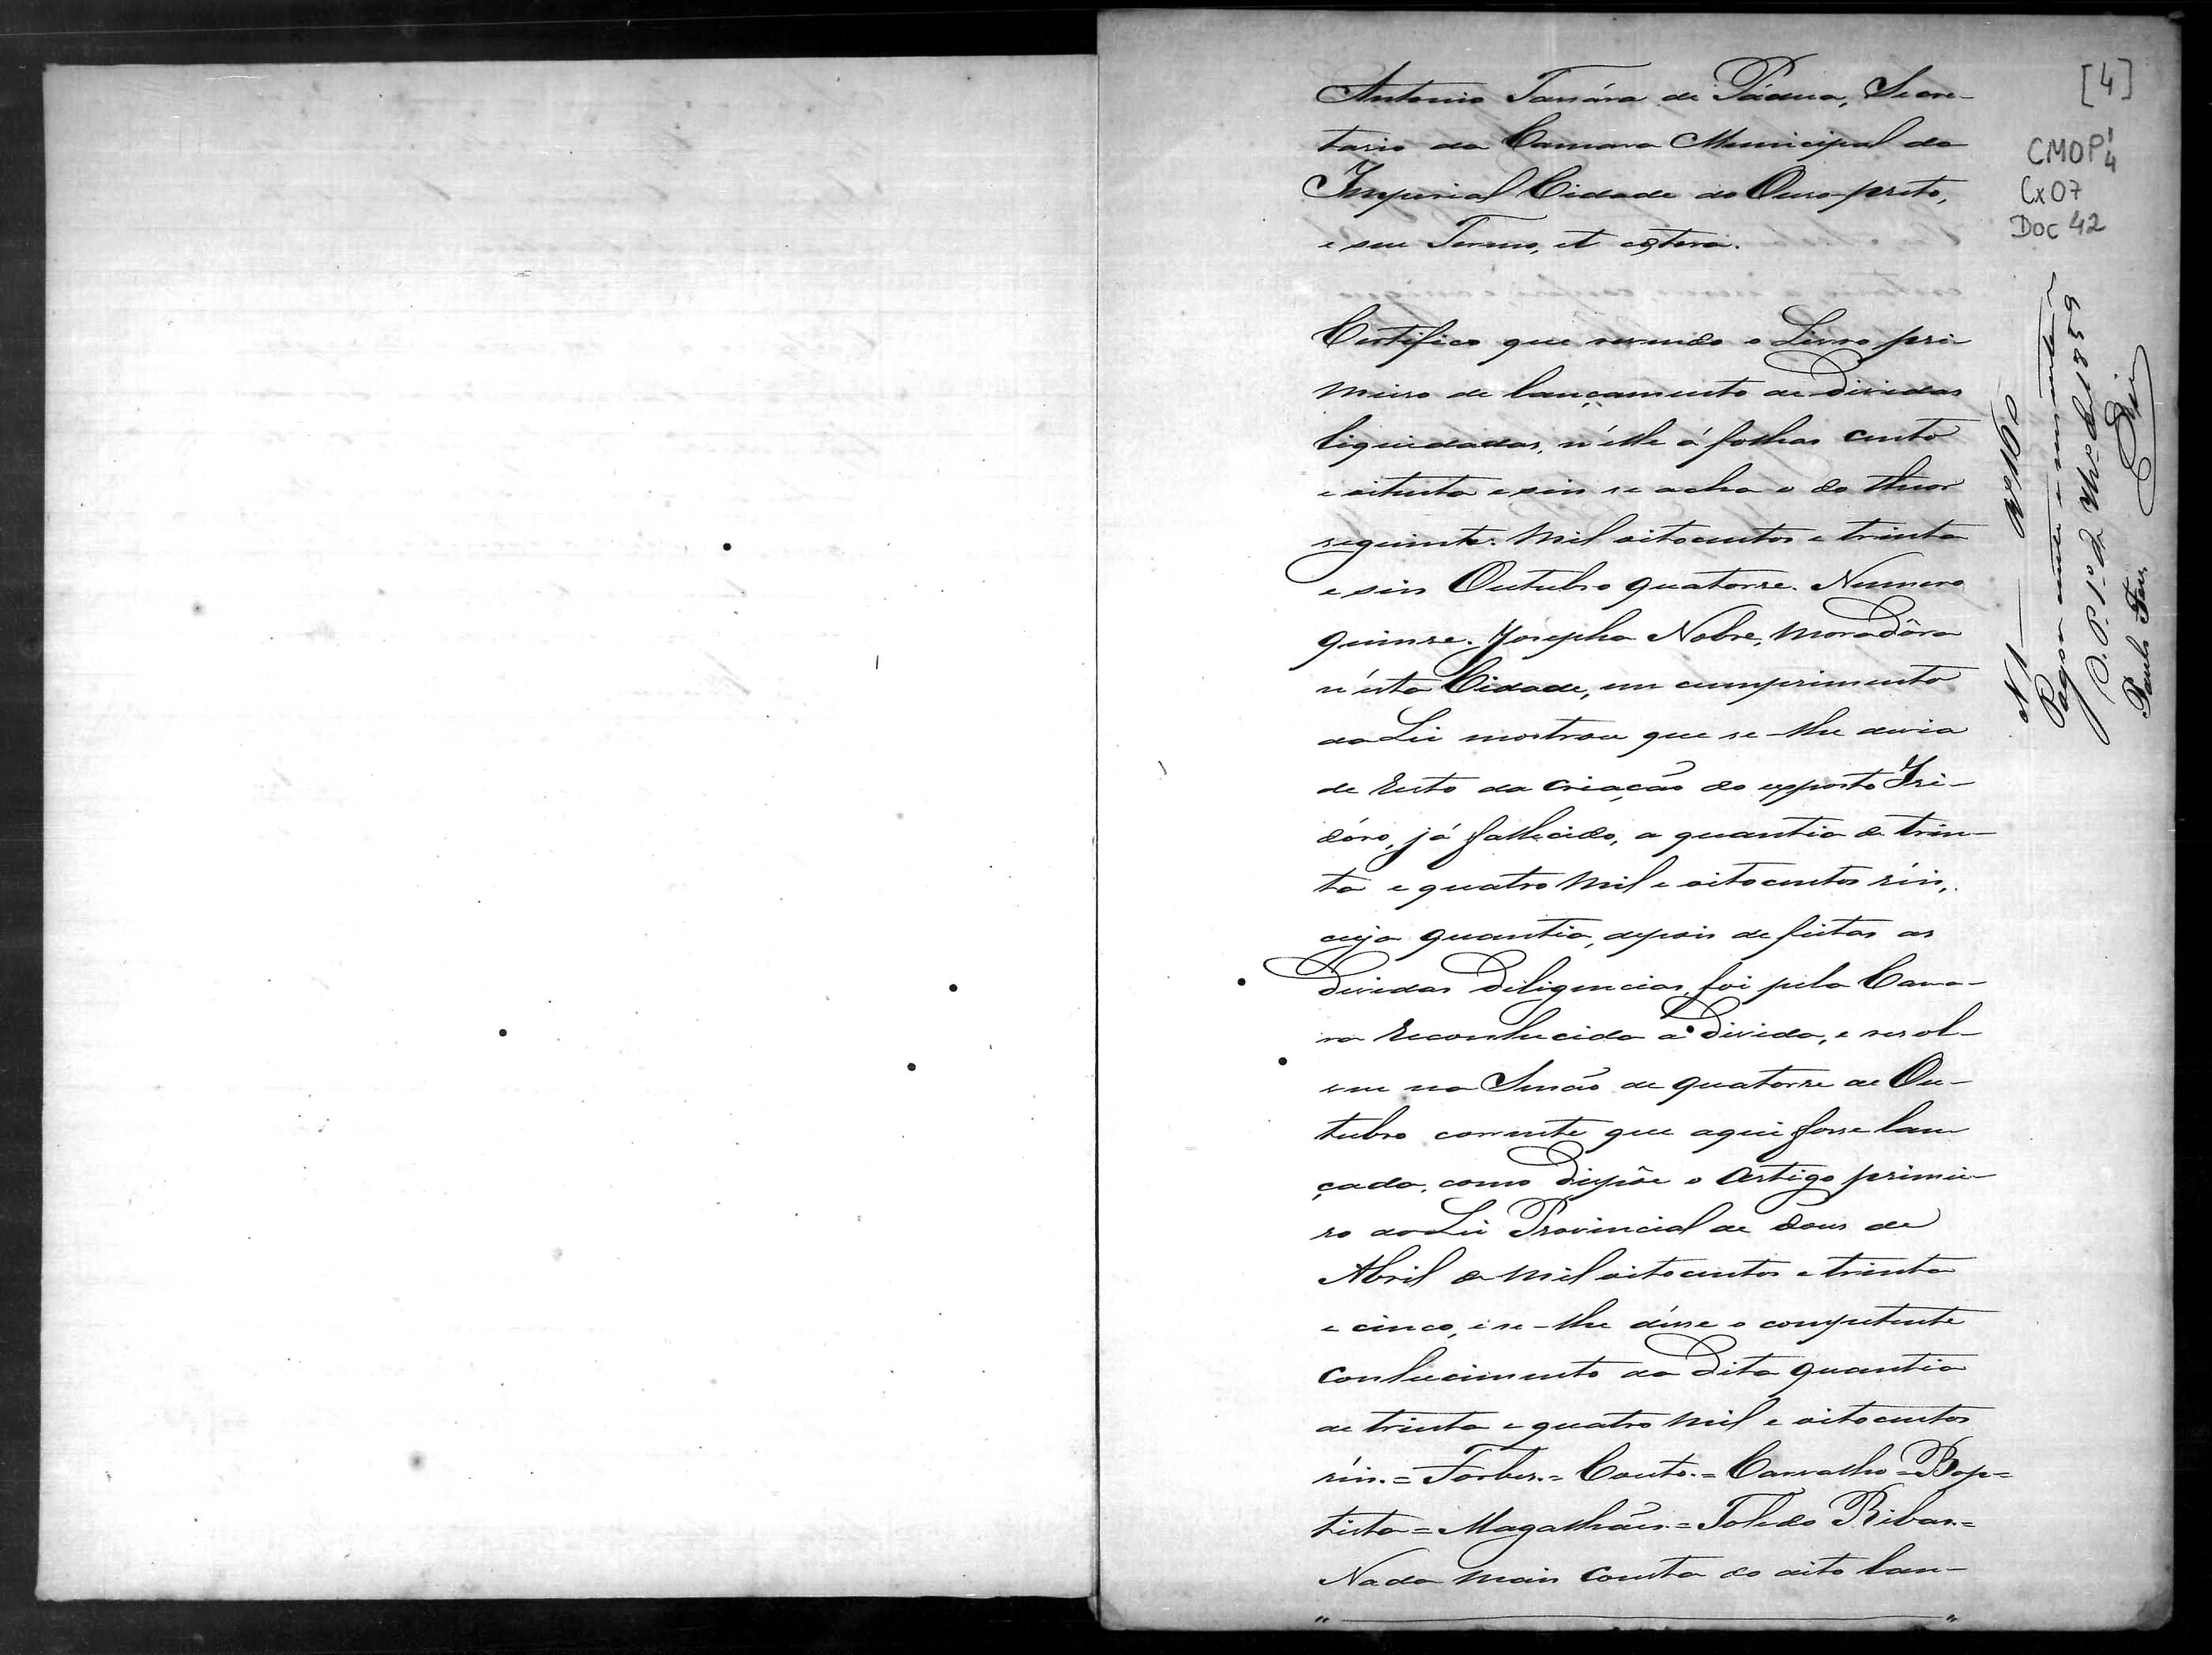 Antonio Tassára de Pádua, Secre-
tario da Camara Municipal da
Imperial Cidade do Ouro-preto,
e seu Termo, et cętera.
Certifico que revendo o Livro pri-
meiro de lançamento de Dividas
liquidadas, n'élle á folhas cento
e oitenta e seis se acha o do theor
seguinte. Mil oitocentos e trinta
e seis Outubro quatorse. Numero
quinse. Josepha Nobre, moradôra
n'ésta Cidade, em cumprimento
da Lei mostrou que se-lhe devia
de resto da criação do exposto Isi-
dóro, já fallecido, a quantia de trin-
ta e quatro mil e oitocentos réis,
cuja quantia, depois de feitas as
devidas Diligencias, foi pela Cama-
ra reconhecida a Divida, e resol-
veu na Sessão de quatorse de Ou-
tubro corrente que aqui fosse lan
çada, como dispõe o Artigo primei-
ro da Lei Provincial de dous de
Abril de mil oitocentos e trinta
e cinco, e se-lhe désse o competente
conhecimento da dita quantia
de trinta e quatro mil e oitocentos
réis. = Forbes. = Couto. = Carvalho = Bap=
tista = Magalhães. = Toledo Ribas. =
Nada mais consta do dito lan-
[4]
CMOP
Cx 07
Doc 42
N 1
Paga
O. P. 1º de Mço de 1839
Paulo